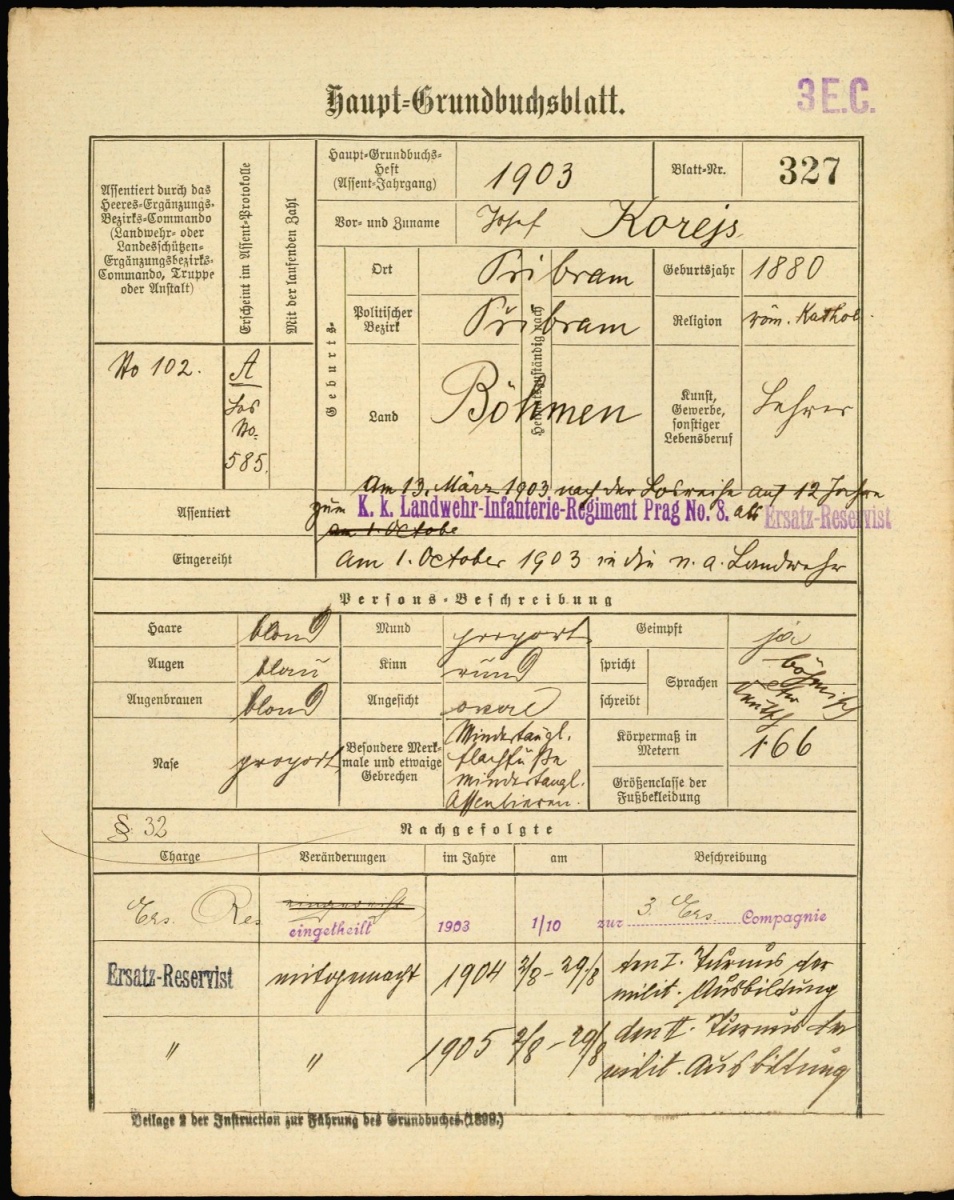 Haupt-Grundbuchsblatt.
3 E.C.
Assentiert durch das
Heeres-Ergänzungs-
Bezirks-Commando
(Landwehr- oder
Landesschützen-
Ergänzungsbezirks-
Commando, Truppe
oder Anstalt)
Erscheint im Assent-Protokolle
Mit der laufenden Zahl
No 102.
A
Los
No.
585.
Haupt-Grundbuchs-
Heft
(Assent-Jahrgang)
1903
Blatt-Nr.
327
Vor- und Zuname
Josef Korejs
Geburts-
Heimatszuständig nach
Ort
Přibram
Geburtsjahr
1880
Politischer
Bezirk
Přibram
Religion
röm. Kathol.
Land
Böhmen
Kunst,
Gewerbe,
sonstiger
Lebensberuf
Lehrer
Assentiert
Am 13. März 1903 nach der Losreihe auf 12 Jahre
zum K. k. Landwehr-Infanterie-Regiment Prag No. 8. als Ersatz-Reservist
am 1. Octobe
Eingereiht
am 1. October 1903 in die n. a. Landwehr
Persons-Beschreibung
Haare
blond
Mund
proport.
Geimpft
ja
Augen
blau
Kinn
rund
spricht
schreibt
Sprachen
böhmisch
deutsch
Augenbrauen
blond
Angesicht
oval
Nase
proport.
Besondere Merk-
male und etwaige
Gebrechen
Mindertaugl.
Flachfüße
mindertaugl.
Assentieren.
Körpermaß in
Metern
1·66
Größenclasse der
Fußbekleidung
§ 32
Nachgefolgte
Charge
Veränderungen
im Jahre
am
Beschreibung
Ers. Res.
eingereiht
eingetheilt
1903
1/10
zur 3. Ers. Compagnie
Ersatz-Reservist
mitgemacht
1904
2/8 – 29/8
den I. Turnus der
milit. Ausbildung
"
"
1905
2/8 – 29/8
den II. Turnus der
milit. Ausbildung
Beilage 2 der Instruction zur Führung des Grundbuches (1899.)